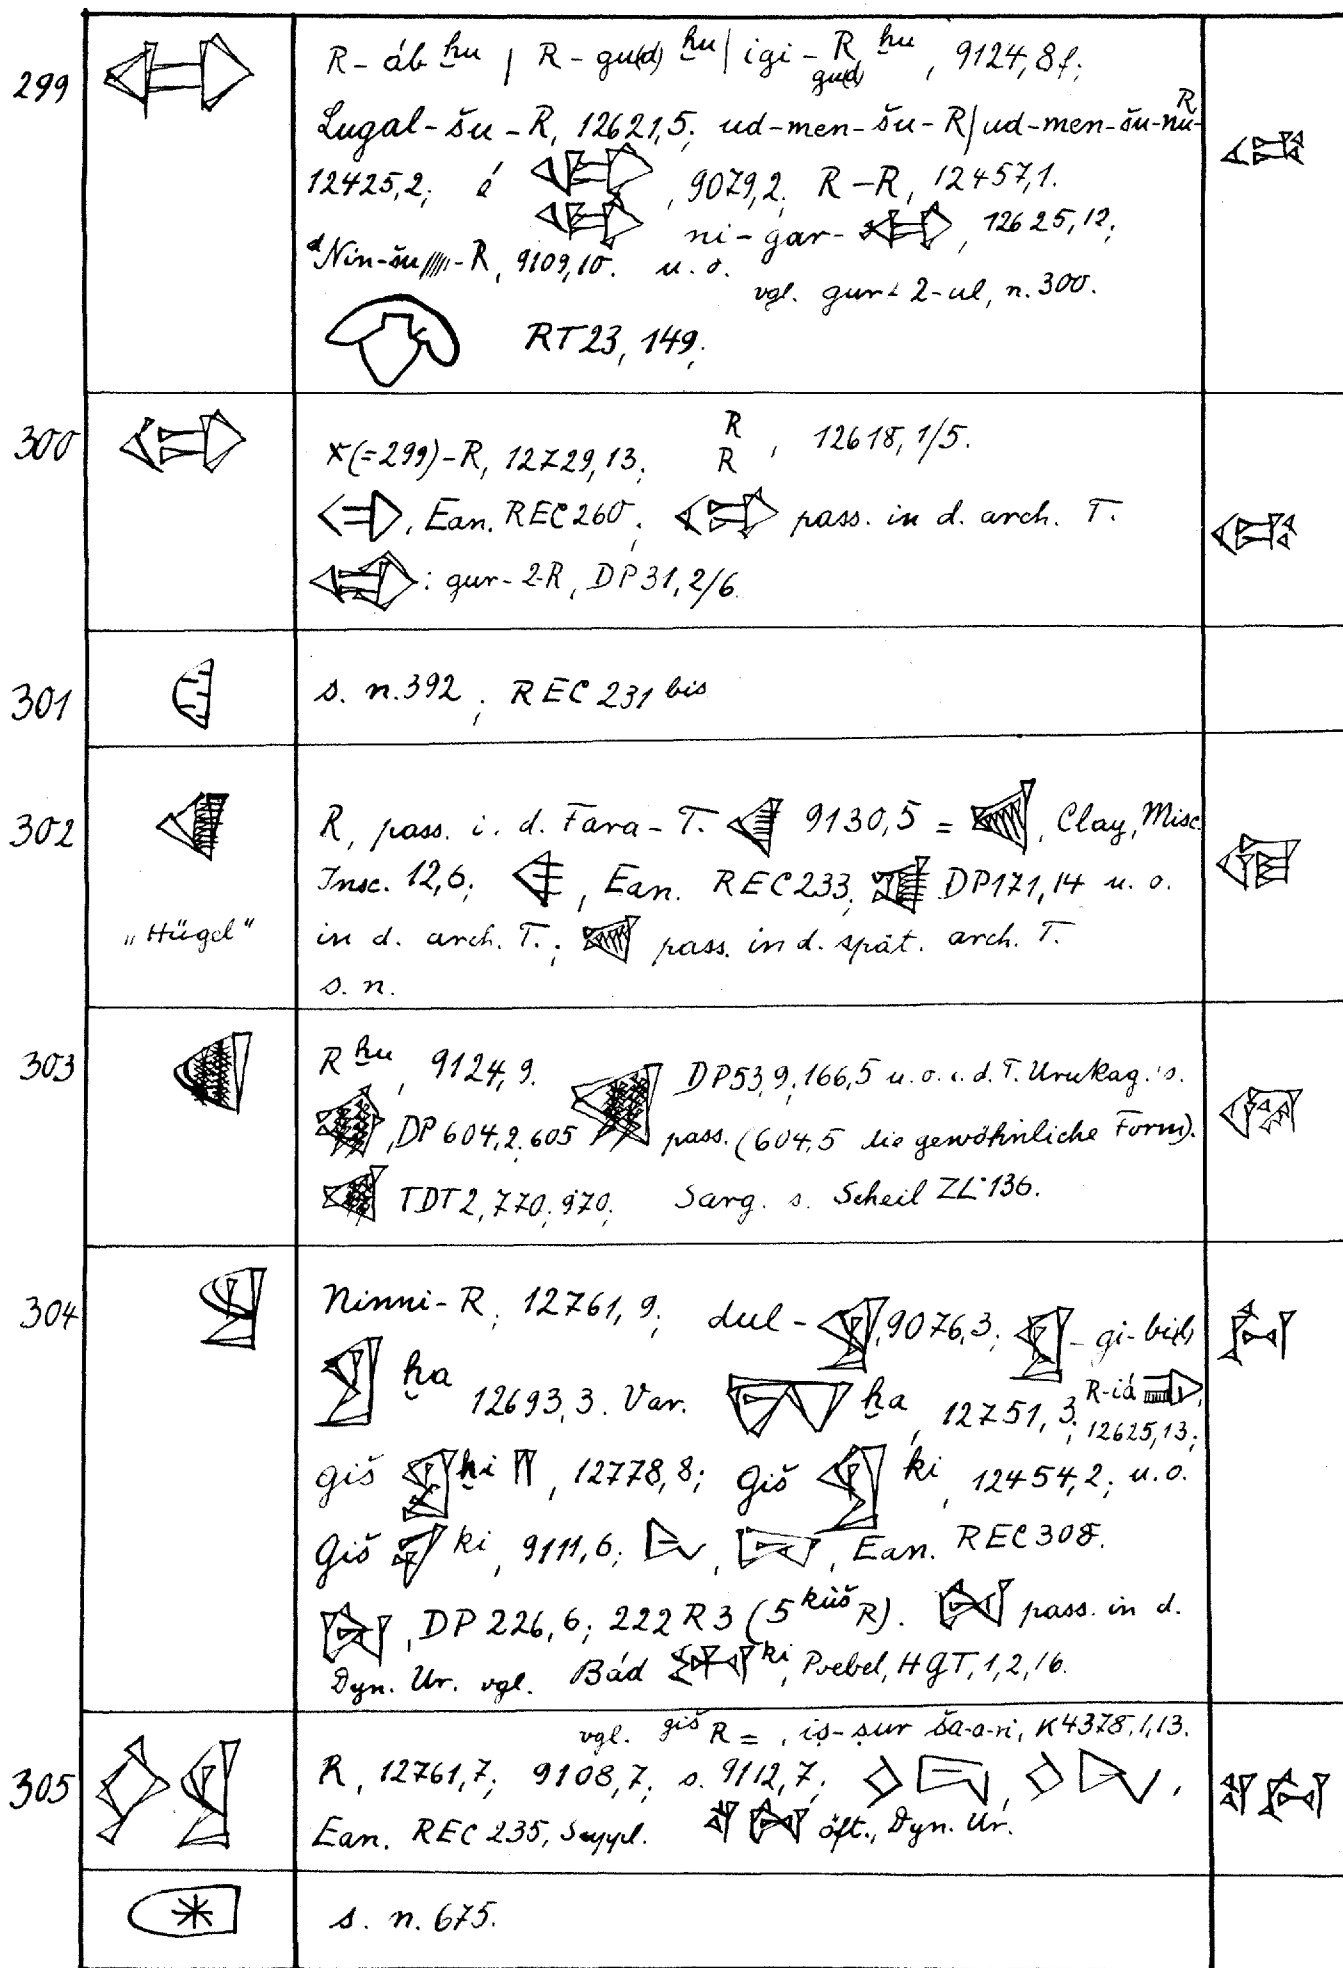 299
R-áb ḫu | R-gu(d) ḫu | igi-R ḫu, 9124,8f;
gu(d)
Lugal-šu-R, 12621,5; ud-men-šu-R | ud-men-šu-nu-R
12425,2; é , 9079,2; R-R, 12457,1.
ni-gar- , 12625,12;
ᵈNin-šu -R, 9109,10. u. o.
vgl. gur 2-ul, n. 300.
RT 23, 149;
300
x(=299)-R, 12729,13; R R, 12618, 1/5.
, Ean. REC 260; pass. in d. arch. T.
: gur-2-R, DP 31, 2/6.
301
s. n. 392; REC 231 bis
302
R, pass. i. d. Fara-T. 9130,5 = , Clay, Misc.
Insc. 12,6; , Ean. REC 233; DP 171,14 u. o.
„Hügel“
in d. arch. T.; pass. in d. spät. arch. T.
s. n.
303
R ḫu, 9124,9. DP 53,9; 166,5 u. o. i. d. T. Urukag.'s.
, DP 604,2; 605 pass. (604,5 die gewöhnliche Form).
TDT 2, 770; 970; Sarg. s. Scheil ZL 136.
304
Ninni-R, 12761,9; dul- , 9076,3; -gi-bi(l)
ḫa 12693,3. Var. ḫa, 12751,3; R-iá , 12625,13;
giš ki , 12778,8; Giš ki, 12454,2; u. o.
Giš ki, 9111,6; , , Ean. REC 308.
, DP 226,6; 222 R 3 (5 kùš R). pass. in d.
Dyn. Ur. vgl. Bád ki, Poebel, HGT, 1,2,16.
305
vgl. giš R = , iṣ-ṣur ša-a-ri, K 4378,1,13.
R, 12761,7; 9108,7; s. 9112,7; , ,
Ean. REC 235, Suppl. öft., Dyn. Ur.
s. n. 675.